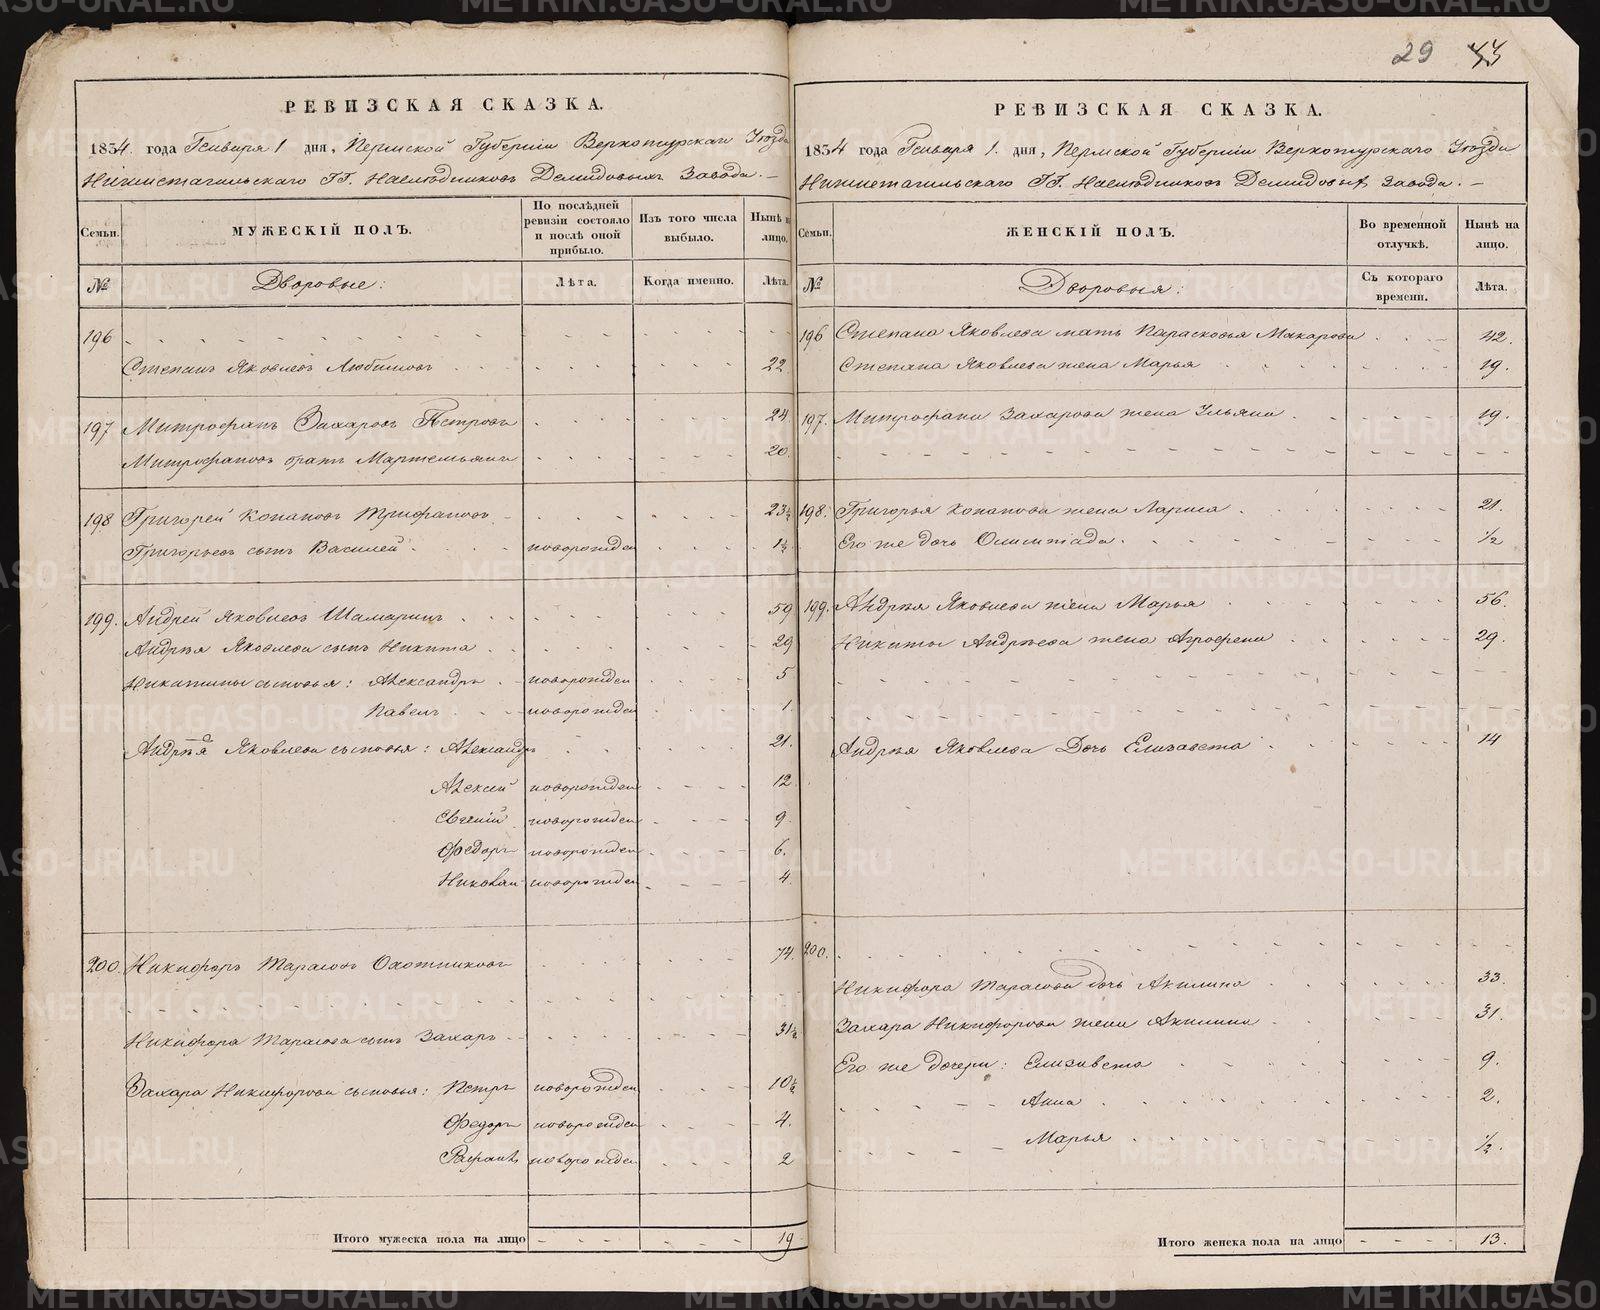 29 43
РЕВИЗСКАЯ СКАЗКА.
1854 года Генваря 1 дня, Пермской Губерніи Верхотурскаго Уѣзда
Нижнетагильскаго ГГ. Наслѣдниковъ Демидовыхъ Завода.
Семьи. МУЖЕСКІЙ ПОЛЪ. По послѣдней ревизіи состояло и послѣ оной прибыло. Изъ того числа выбыло. Нынѣ на лицо.
№ Дворовые: Лѣта. Когда именно. Лѣта.
196
Степанъ Яковлевъ Любимовъ 22
197 Митрофанъ Захаровъ Петровъ 24
Митрофановъ братъ Мартемьянъ 20
198 Григорей Конановъ Трифановъ 23½
Григорьевъ сынъ Василей новорожден 1½
199. Андрей Яковлевъ Шамаринъ 59
Андрѣя Яковлева сынъ Никита 29
Никитины сыновья: Александръ новорожден 5
Павелъ новорожден 1
Андрѣя Яковлева сыновья: Александръ 21.
Алексѣй новорожден 12
Евгеній новорожден 9
Ѳедоръ новорожден 6.
Николай новорожден 4
200. Никифоръ Тарасовъ Охотниковъ 74
Никифора Тарасова сынъ Захаръ 31½
Захара Никифорова сыновья: Петръ новорожден 10½
Ѳедоръ новорожден 4.
Рафаилъ новорожден 2
Итого мужеска пола на лицо 19
РЕВИЗСКАЯ СКАЗКА.
1854 года Генваря 1. дня, Пермской Губерніи Верхотурскаго Уѣзда
Нижнетагильскаго ГГ. Наслѣдниковъ Демидовыхъ Завода.
Семьи. ЖЕНСКІЙ ПОЛЪ. Во временной отлучкѣ. Нынѣ на лицо.
№ Дворовыя: Съ котораго времени. Лѣта.
196 Степана Яковлева мать Парасковья Макарова 42.
Степана Яковлева жена Марья 19.
197. Митрофана Захарова жена Ульяна 19.
198. Григорья Конанова жена Лариса 21.
Его же дочь Олимпіада ½
199. Андрѣя Яковлева жена Марья 56.
Никиты Андрѣева жена Агрофена 29.
Андрѣя Яковлева Дочь Елизавета 14
200.
Никифора Тарасова дочь Акилина 33.
Захара Никифорова жена Акилина 31.
Его же дочери: Елизавета 9.
Анна 2.
Марья ½.
Итого женска пола на лицо 13.
METRIKI.GASO-URAL.RU